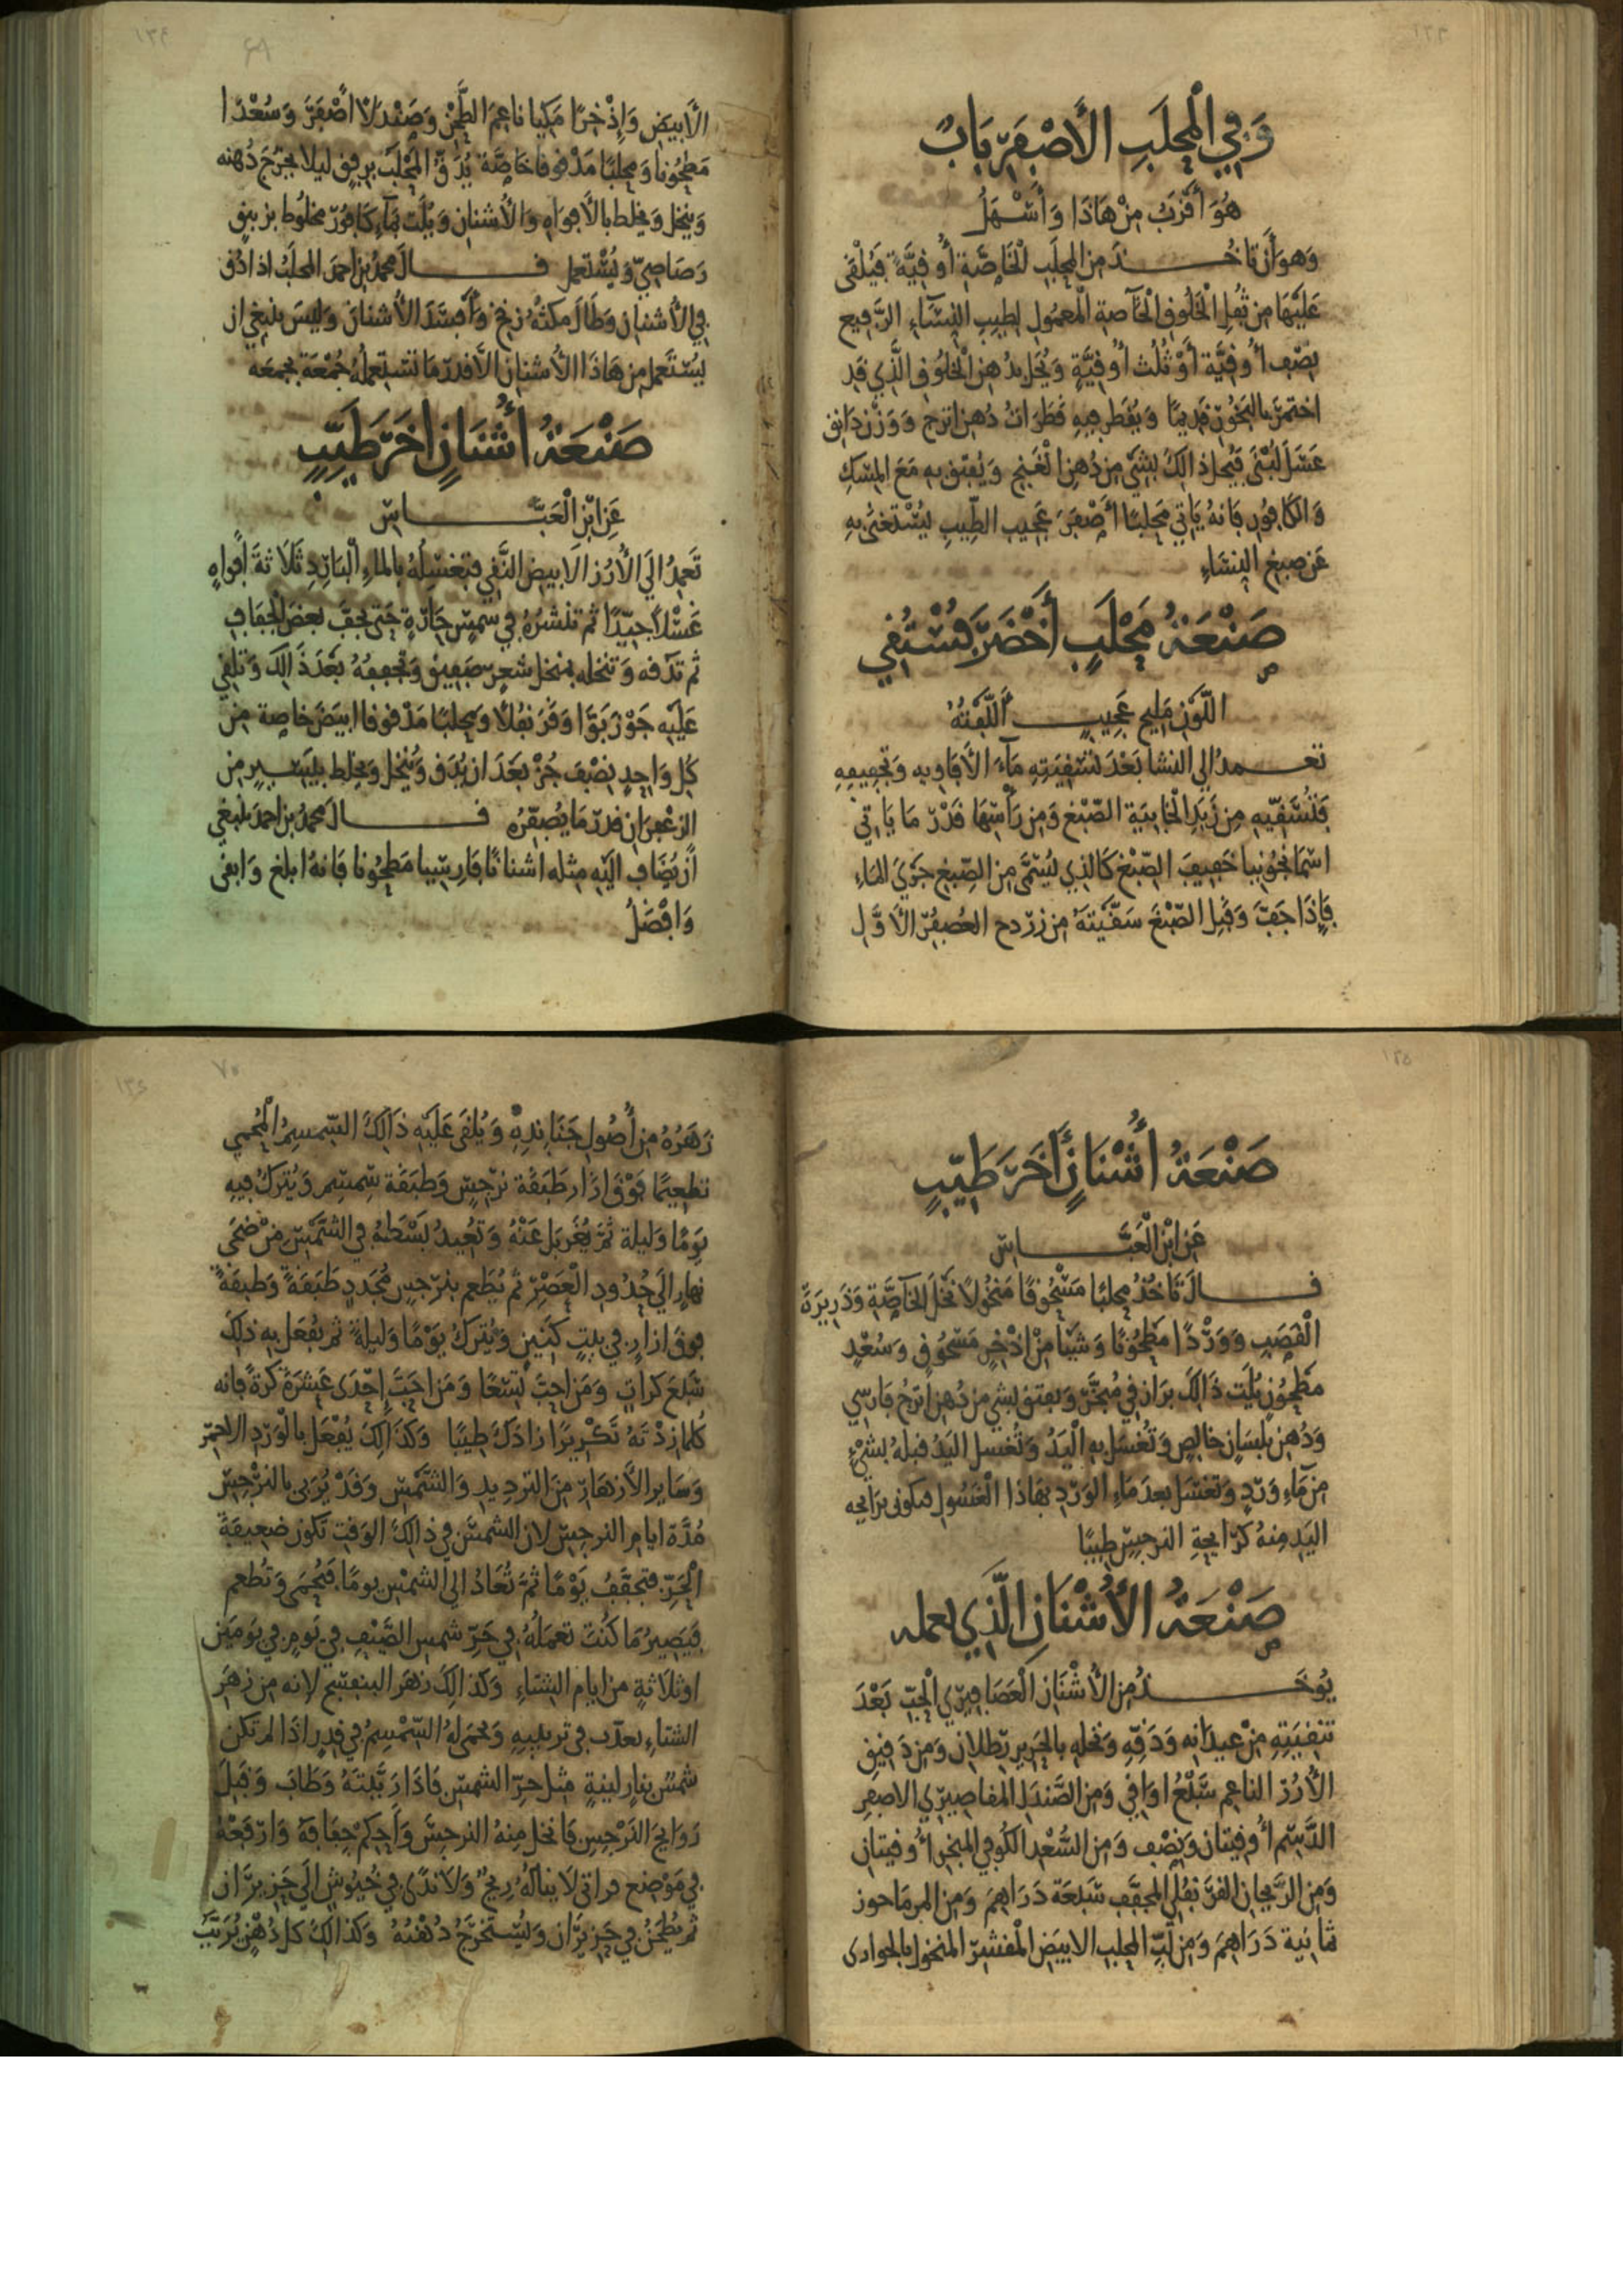 وَفِي الْمَحْلَبِ الأَصْفَرِ بَابٌ
هُوَ أَقْرَبُ مِنْ هَاذَا وَأَسْهَلُ
وَهوَ أَن تَاخُذَ مِنَ المحلَبِ الْخَاصَّةِ أُوقِيَّةً فَيُلْقَى
عَلَيْهَا مِن ثُفلِ الْخَلُوقِ الْخَاصةِ الْمعمُولِ لِطيبِ النِسَاءِ الرَّفِيعِ
نِصْف أُوقِيَّة أَوْ ثُلُث أُوقِيَّةٍ وَيُحَل بدُهن الْخلُوقِ الَّذِي قَدِ
اختمرَ بالبَخُورِ قَدِيمًا وَيُقَطر فِيهِ قَطَرَاتُ دُهن اترج وَوَزْن دَانِق
عَسَل لُبْنَى فَيُحل ذَالِكَ بِشَيْ مِن دُهن الْغنج وَيُفتق به مَعَ المِسْكِ
وَالكَافُورِ فَانهُ يَاتِي مَحلبًا أَصْفَرَ عَجِيب الطِّيبِ يُسْتغنَى بِهِ
عَن صبغِ النِشَاءِ
صَنْعَةُ مَحْلَبٍ أَخْضَرَ فُسْتُقِي
اللَّوْنِ مَلِيح عَجِيبٍ أَلَّفْتُهُ
تعمدُ الي النشا بَعْدَ تَسْقِيَتِهِ مَآءَ الأَفَاوِيهِ وَتَجْفِيفِهِ
فَتُسَقِّيهِ مِن زَبَدِ الْخَابِيَة الصّبْغِ وَمِن رَأْسِهَا قَدْرَ مَا يَاتِي
اسْمَانجُونِيا خَفِيفَ الصِّبْغ كَالذِي يُسَمَّى مِنَ الصِّبغِ جَرْيَ المَاءِ
فَإِذَا جَفّ وَقَبِل الصِّبْغَ سَقَّيتَهُ مِن زردج العُصفُرِ الأَوَّل
الأَبيَض وَإِذْخِرًا مَكيا نَاعِمَ الطَّحْنِ وَصَنْدَلًا أَصْفَرَ وَسُعْدًا
مَطحُونا وَمحلبًا مَدْقوقا خَاصَّة يُدَقُّ الْمَحْلَبُ بِرِفقٍ ليلا يَخرُجَ دُهنه
وَينخل وَيخلط بالأَفوَاهِ وَالأُشنان وَيُلَت بمَآءِ كَافُور مخلُوط بزيبقٍ
رَصَاصِيّ وَيُسْتَعمل قال محمدُ بن احمدَ المحلَبُ اذا دُق
فِي الأُشنان وَطَالَ مكثُهُ زنخ وَأَفسَدَ الأُشنانَ وَليسَ ينبغِي ان
يُستَعمل مِن هَاذَا الأُشنان الاَّ قَدر مَا تَسْتعملُهُ جُمعَة بجمعَه
صَنْعَةُ أُشْنَانٍ اخَرَ طَيِّبٍ
عَنِ ابْنِ الْعَبَّاسِ
تَعمِدُ الَي الأُرُز الاَبيَض النَّقِي فتغسِلُهُ بالماءِ الْبَارِدِ ثَلَاثَةَ أَفْوَاهٍ
غَسْلًا جَيِّدًا ثم تنشرُهُ فِي شمسٍ حَارَّةٍ حَتى يجفّ بَعضَ الْجفَافِ
ثم تدقه وَتنخله بمنخلِ شعرٍ صَفِيقٍ وَتجففهُ بَعْدَ ذَالِكَ وَتلقي
عَلَيْهِ جَوْزَ بَوَّا وَقَرَنفُلًا وَمحلبًا مَدْقوقا ابيَضَ خاصة مِن
كل وَاحِدٍ نِصْفَ جُزْءٍ بَعْدَ ان يُدَق وَيُنخل وَيخلط بِيَسِيرٍ مِن
الزعْفرَان قدر مَا يُصفِّرُه قال محمدُ بن احمدَ ينبغي
أَن يُضَافَ اليْهِ مِثله اشنانًا فَارِسِيا مَطحُونا فَانهُ ابلغ وَانقى
وَافْضَلُ
صَنْعَةُ أُشْنَانٍ أَخَرَ طَيِّبٍ
عَنِ ابْنِ الْعَبَّاسِ
قال تَاخُذُ محلبًا مَسْحُوقًا مَنخُولًا نَخْلَ الْخَآصَّةِ وَذَرِيرَةَ
الْقصَبِ وَوَرْدًا مَطحُونًا وَشَيْأً مِنْ إِذْخِرٍ مَسْحُوقٍ وَسُعْدٍ
مَطحُونٍ يُلَت ذَالِكَ
وَدُهن بلسَانٍ خالِصٍ وَتُغسَل بِهِ الْيَدُ وَتُغسل اليَدُ قبلهُ بِشَيْءٍ
مِن مَاءِ وَرْدٍ وَتغسَل بعدَ مَاءِ الوَرْدِ بهَاذا الْغَسُولِ فتكون رَايحه
اليَدِ مِنهُ كَرَايحَةِ النرجِسِ طِيبًا
صَنْعَةُ الأُشْنَانِ الَّذِي يعمله
يُوخَذُ مِن الأُشْنَان الْعَصَافِيرِي الْجَيّد بَعْدَ
تنقِيَتِهِ مِنْ عِيدَانِه وَدَقِّهِ وَنخلهِ بالحَرِير رطلان وَمِن دَقِيقِ
الأَرُزِّ الناعم سَبْع اوَاقِي وَمِن الصَّندَلِ المقاصِيرِي الاصفرِ
الدَّسم أُوقيتان وَنصْف وَمِن السُّعْدِ الكُوفِي المبَخر أُوقيتانِ
وَمِن الرَّيحانِ القَرَنفُلِي المجَفّف سَبْعَة دَرَاهِمَ وَمِن المرمَاحوز
ثمانِية دَرَاهِمَ وَمِن لُبّ المحلبِ الابيَض الْمُقشر المنخول بالحوارى
زَهَرُهُ مِنْ أُصُولِ جَنَابِذِهِ وَيُلْقَى عَلَيْهِ ذَالِكَ السِّمسِمُ الْمُحْمي
تطعِيمًا فَوْقَ ازَار طَبَقَة نرْجِس وَطَبَقَة سِمسِم وَيُترَكُ فِيهِ
يَوْمًا وَليلة ثمَّ يُغَرْبَل عَنْهُ وَتُعِيدُ بَسْطَهُ فِي الشَّمْسِ مِنْ ضحَى
نهَارٍ الَي حُدُودِ الْعَصْرِ ثم يُطعم بنرْجسٍ مُجَدَدٍ طَبَقَةً وَطبقَةً
فوقَ ازارٍ فِي بَيتٍ كنينٍ وَيُترَكُ يَوْمًا وَليلةً ثم يُفعَل بِهِ ذَلِكَ
سَبْعَ كراتٍ وَمَن احِبّ تِسْعًا وَمَن احَبَّ إِحْدَى عَشْرَةَ كَرةً فَإنه
كُلمَا زِدْتَهُ تَكْرِيرًا زَادَكَ طِيبًا وَكذَالِكَ يُفْعَل بالْوَرْدِ الاحمَرِ
وَسَايرِ الأَزهَارِ مِنَ الترْدِيدِ وَالشَّمْسِ وَقَدْ يُرَبى بالنرْجِسِ
مُدَّةَ ايامِ النرجِسِ لان الشمسَ فِي ذَالِكَ الوَقتِ تَكون ضعِيفَةَ
الْحَرِّ فتجَفّفُ يَوْمًا ثمَّ تُعَادُ الي الشمْسِ يومًا فتُحْمَى وَتُطعم
فَيَصِيرُ مَا كُنتَ تعمَلُهُ فِي حَرِّ شمسِ الصَّيْفِ فِي يَومٍ فِي يَوْمَيْنِ
اوثَلاَثةٍ مِن ايام الشتَاءِ وَكذَالِكَ زهرَ البنفسَج لانه مِن زهَرِ
الشتاءِ يعذّب فِي تربيبِهِ وَيحمَى لهُ السِّمْسِمُ فِي قِدرٍ اذَا لم تكن
شمسٌ بنارٍ لينةٍ مثل حرّ الشمسِ فَاذَا رَبَّبْتَهُ وَطَابَ وَقَبِلَ
رَوَايحَ النَرْجِسِ فَانخل مِنهُ النرجسَ وَأَحكم جفَافهُ وَارْفَعْهُ
فِي مَوْضِع لاَ ينَالُهُ رِيحٌ وَلاَ نَدًى فِي خُيُوشٍ الَي حَزِيرَان
ثم يُطْحَنُ فِي حَزِيرَان وَيُسْتَخرَجُ دُهْنُهُ وَكذَالِكَ كل دُهْنٍ يُرَبَّبُ